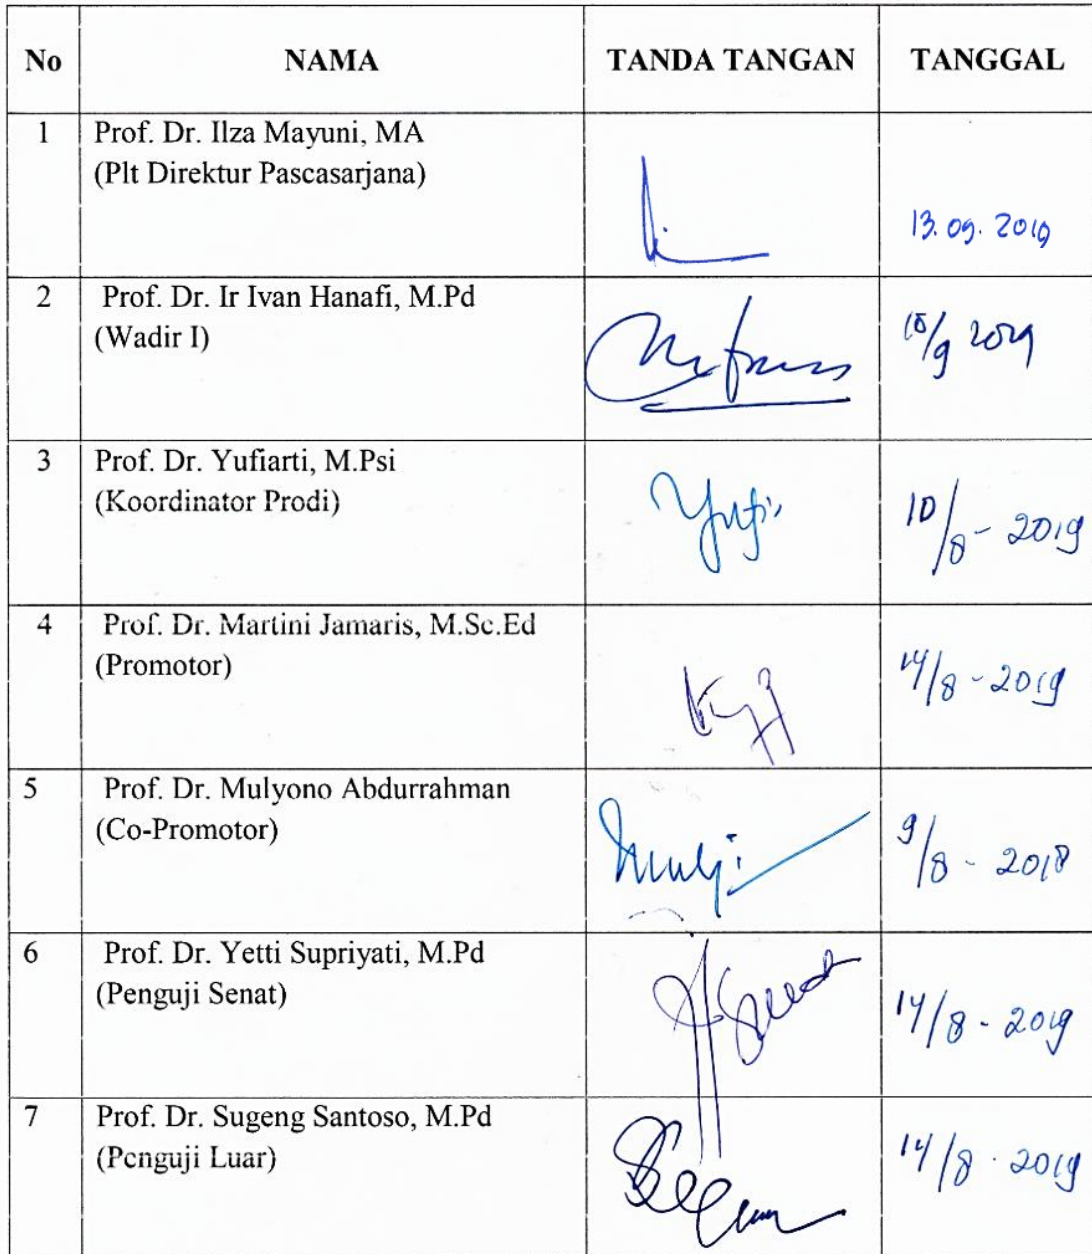 No NAMA TANDA TANGAN TANGGAL
1 Prof. Dr. Ilza Mayuni, MA
(Plt Direktur Pascasarjana)
13.09.2019
2 Prof. Dr. Ir Ivan Hanafi, M.Pd
(Wadir I)
/9 2019
3 Prof. Dr. Yufiarti, M.Psi
(Koordinator Prodi)
Yufi
10/8-2019
4 Prof. Dr. Martini Jamaris, M.Sc.Ed
(Promotor)
14/8-2019
5 Prof. Dr. Mulyono Abdurrahman
(Co-Promotor)
9/8-2018
6 Prof. Dr. Yetti Supriyati, M.Pd
(Penguji Senat)
14/8-2019
7 Prof. Dr. Sugeng Santoso, M.Pd
(Penguji Luar)
14/8-2019